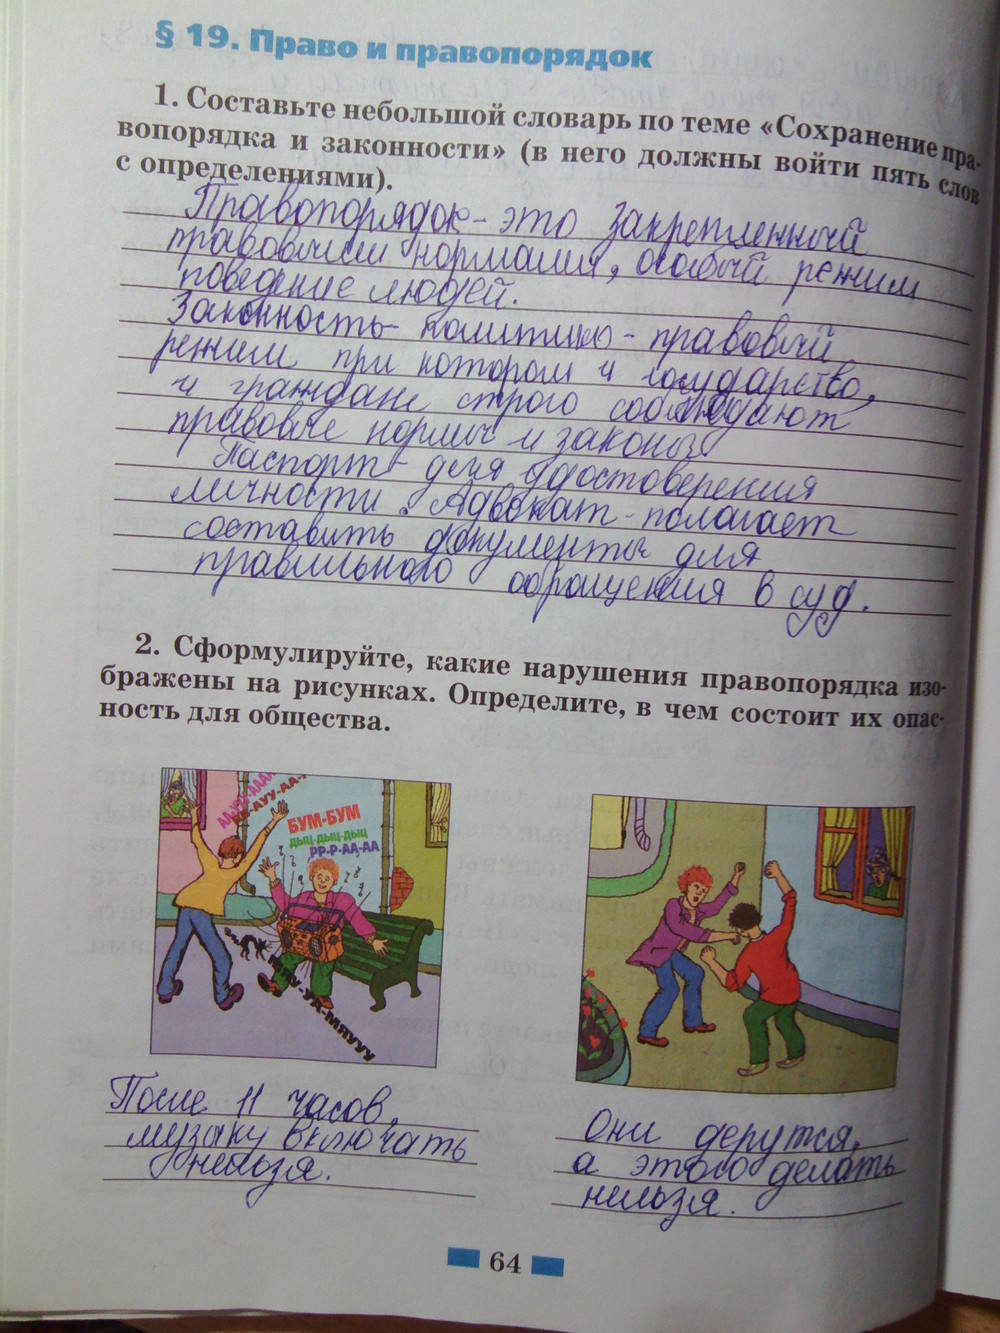 § 19. Право и правопорядок
1. Составьте небольшой словарь по теме «Сохранение пра-
вопорядка и законности» (в него должны войти пять слов
с определениями).
Правопорядок - это закрепленный
правовыми нормами, особый режим
поведение людей.
Законность - политико - правовый
режим при котором и государство,
и граждане строго соблюдают
правовые нормы и законы
Паспорт - для удостоверения
личности. Адвокат - полагает
составить документы для
правильного обращения в суд.
2. Сформулируйте, какие нарушения правопорядка изо-
бражены на рисунках. Определите, в чем состоит их опас-
ность для общества.
БУМ-БУМ
ДЫЦ-ДЫЦ-ДЫЦ
РР-Р-АА-АА
МЯУ-УА-МЯУУУ
После 11 часов,
музыку включать
нельзя.
Они дерутся,
а этого делать
нельзя.
64